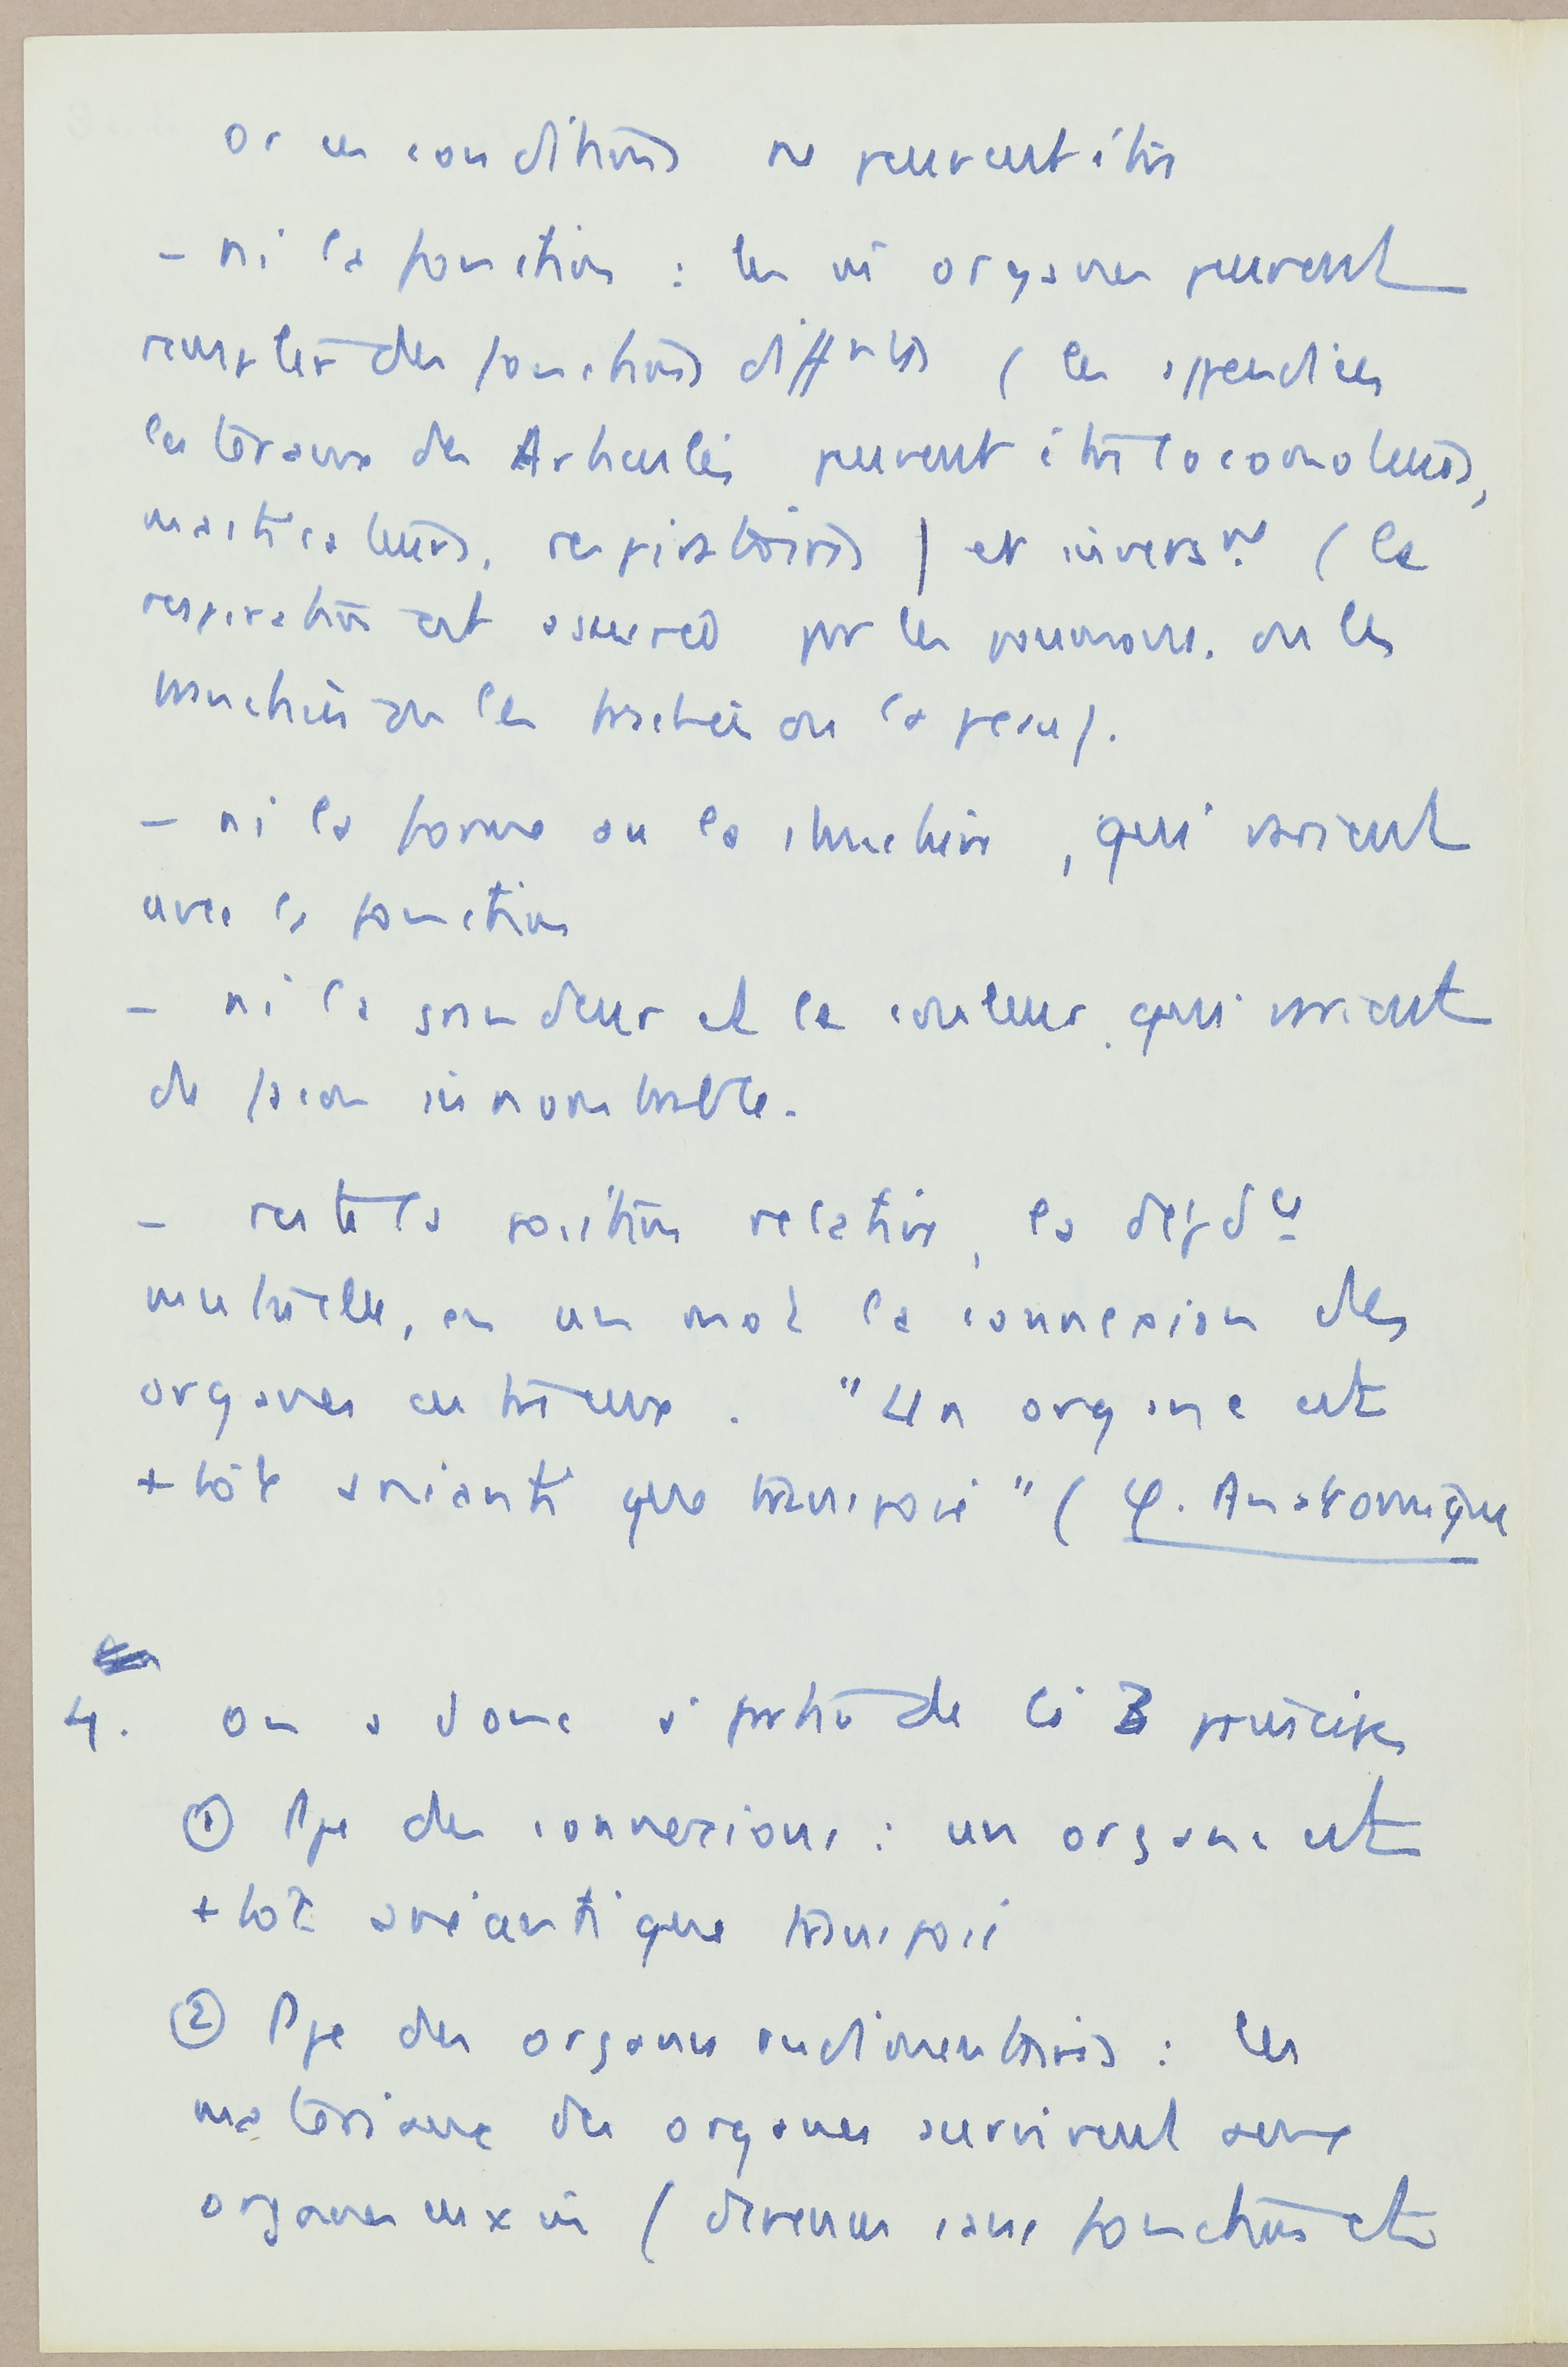 or ces conditions ne peuvent être
- ni la fonction : les m̂ organes peuvent
remplir des fonctions diff^ntes (les appendices
latéraux des Articulés peuvent être locomoteurs,
masticateurs, respiratoires) et invers^nt (la
respiration est assurée par les poumons, ou les
branchies ou les trachées ou la peau).
- ni la forme ou la structure, qui varient
avec la fonction
- ni la grandeur et la couleur, qui varient
de façon innombrable.
- reste la position relative, la dépd^ce
mutuelle, en un mot la connexion des
organes entre eux. "Un organe est
+ tôt anéanti que transposé" (φ. Anatomique
4. on a donc à partir de là 3 principes
① Ppe des connexions : un organe est
+ tôt anéanti que transposé
② Ppe des organes rudimentaires : les
matériaux des organes survivent aux
organes eux m̂ (devenus sans fonction et